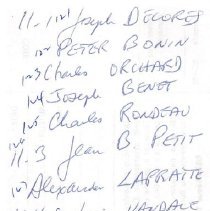 11.1 121 Joseph DECORES
122 PETER BONIN
123 Charles ORCHARD
124 Joseph BENET
125 Charles RONDEAU
126
11.3 Jean B. PETIT
127 Alexander LAPRAITE
VANDALE